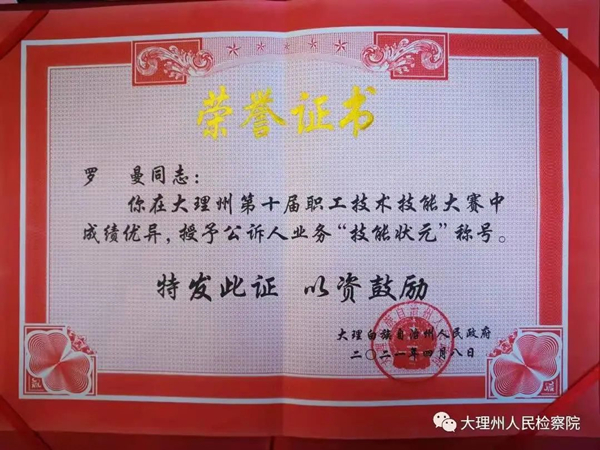 荣誉证书
罗 曼同志：
你在大理州第十届职工技术技能大赛中
成绩优异，授予公诉人业务“技能状元”称号。
特发此证 以资鼓励
大理白族自治州人民政府
二〇二一年四月八日
大理州人民检察院